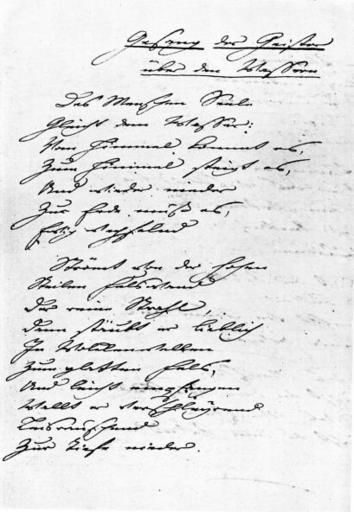 Gesang der Geister
über den Wassern
Des Menschen Seele
Gleicht dem Wasser:
Vom Himmel kommt es,
Zum Himmel steigt es,
Und wieder nieder
Zur Erde muß es,
Ewig wechselnd
Strömt von der hohen
Steilen Felswand
Der reine Strahl,
Dann stäubt er lieblich
In Wolkenwellen
Zum glatten Fels,
Und leicht empfangen
Wallt er verschleyernd
Leisrauschend
Zur Tiefe nieder.